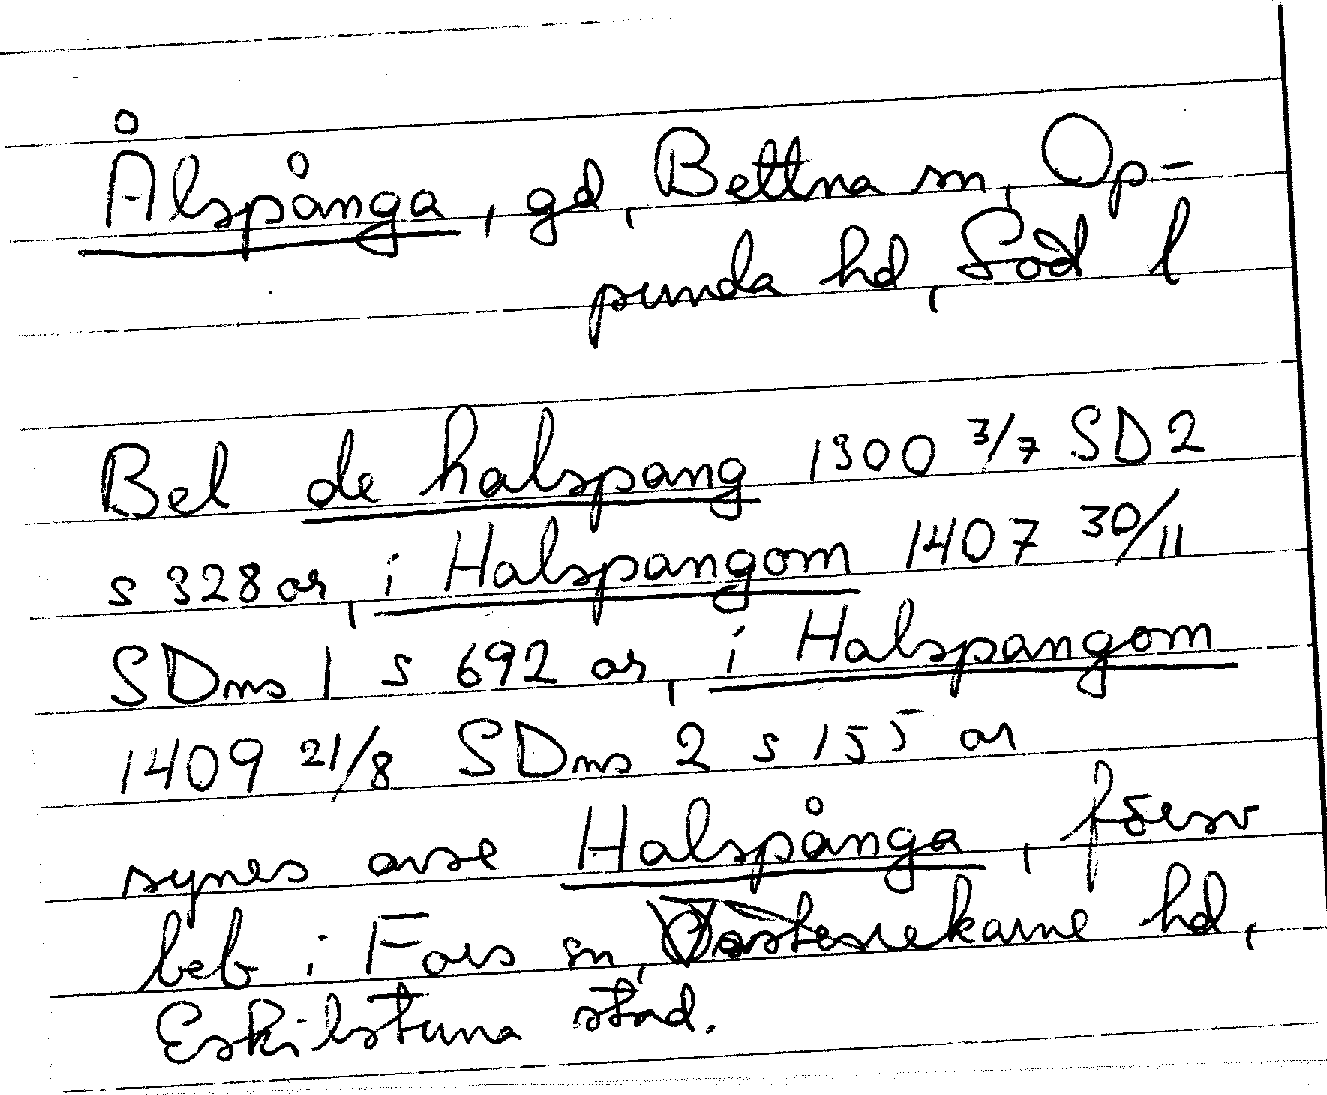 Ålspånga, gd, Bettna sn, Op-
punda hd, Söd l
Bel de halspang 1300 3/7 SD 2
s 328 or, i Halspangom 1407 30/11
SDns 1 s 692 or, i Halspangom
1409 21/8 SDns 2 s 155 or
synes avse Halspånga, försv
beb i Fors sn, Österrekarne hd,
Eskilstuna stad.